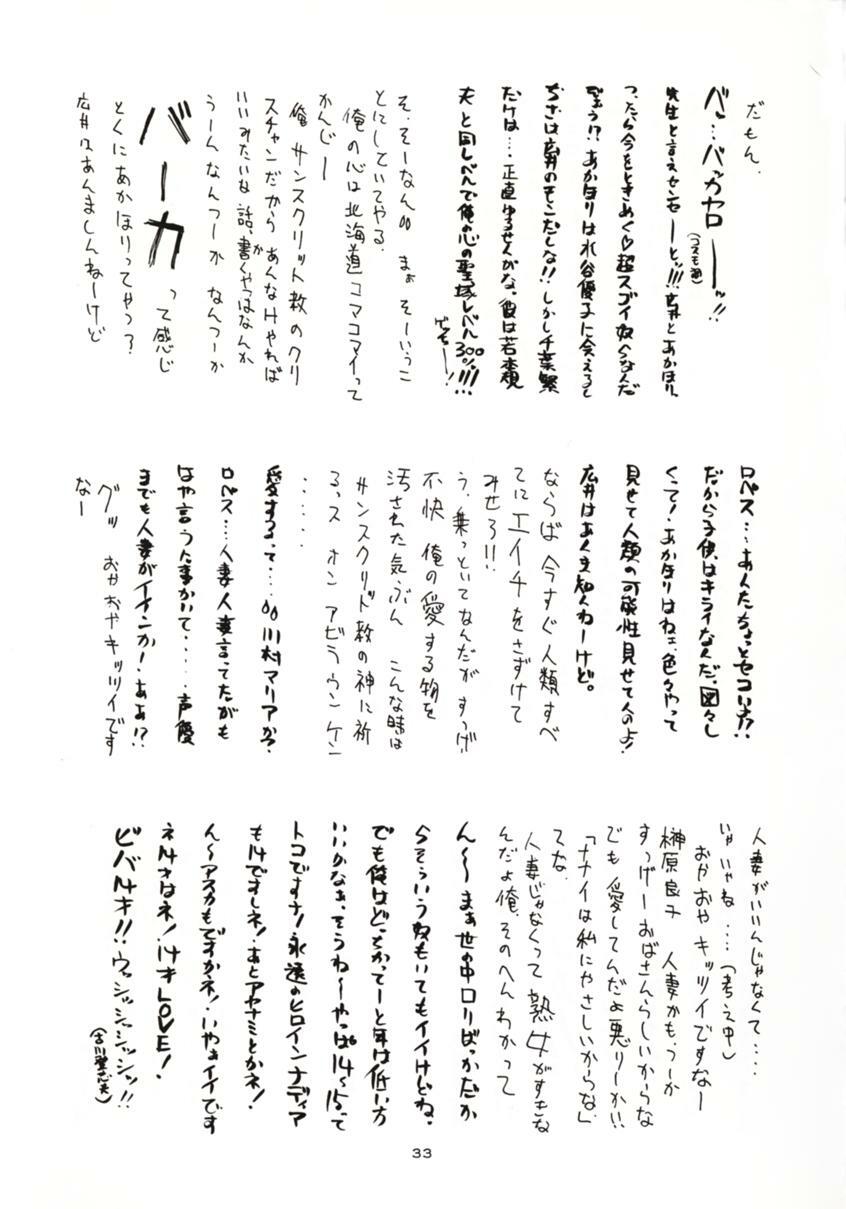 だもん.
バッ…バッカヤロー―ッ!!
(コスモ調)
先生と言えセンセーーとッ!!!広井とあかほり、
ったら今をときめく♡超スゴイ奴らなんだ
ぞぉう!?あかほりは水谷優子に会えると
ちぎは広井のそこだしな!!しかし千葉繁
だけは…正直ゆるせんがな。彼は若本規
夫と同レベルで俺の心の聖域レベル300%!!!
ゲンモー―!
そ、そーなんの まぁ そーいうこ
とにしていてやる.
俺の心は北海道コマコマイって
かんじー
俺 サンスクリット教のクリ
スチャンだから あんなけやれば
いいみたいな話、書くやつはなんか
うーんなんつーか なんつーか
バーカ って感じ
とくにあかほりってやつ?
広井はあんましんねーけど
ロペス…あんたちょっとセコいょ!?
だから子供はキライなんだ。図々し
くって!あかほりはねェ、色々やって
見せて人類の可能性見せて人のよ!
広井はあくま知人ねーけど。
ならば今すぐ人類すべ
てにエイチをさずけて
みせろ!!
う、乗っといてなんだが すっげ
不快 俺の愛する物を
汚された気ぶん こんな時は
サンスクリッド教の神に祈
るっス オン アビラウンケン
・・・・・
愛するって…の川村マリアか?
ロペス…人妻人妻言ってたがも
はや言うた事かいて・・・・声優
までも人妻がイインか!ああ!?
グッ おやおやキッツイです
なー
人妻がいいんじゃなくて・・・・
いゃいゃね・・・・(考え中)
おやおや キッツイですなー
榊原良子 人妻かも、つーか
すっげーおばさんらしいからな
でも 愛してんだよ悪りーか!!
「ナナイは私にやさしいからな」
てな.
人妻じゃなくって 熟女がすきな
んだよ俺.そのへんわかって
ん〜〜まぁ世の中ロリばっかだか
らそういう奴もいてもイイけどね。
でも俺はどっちかってーと年は低い方
いいかなぁ。そうね〜やっぱ14〜15って
トコですナ!永遠のヒロインナディア
も14ですしネ!あとアヤナミとかネ!
ん〜アスカもですかネ!いやぁイイです
ネ14才はネ!14才LOVE!
ビバ14才!!ウッシッシッシッシッ!!
33